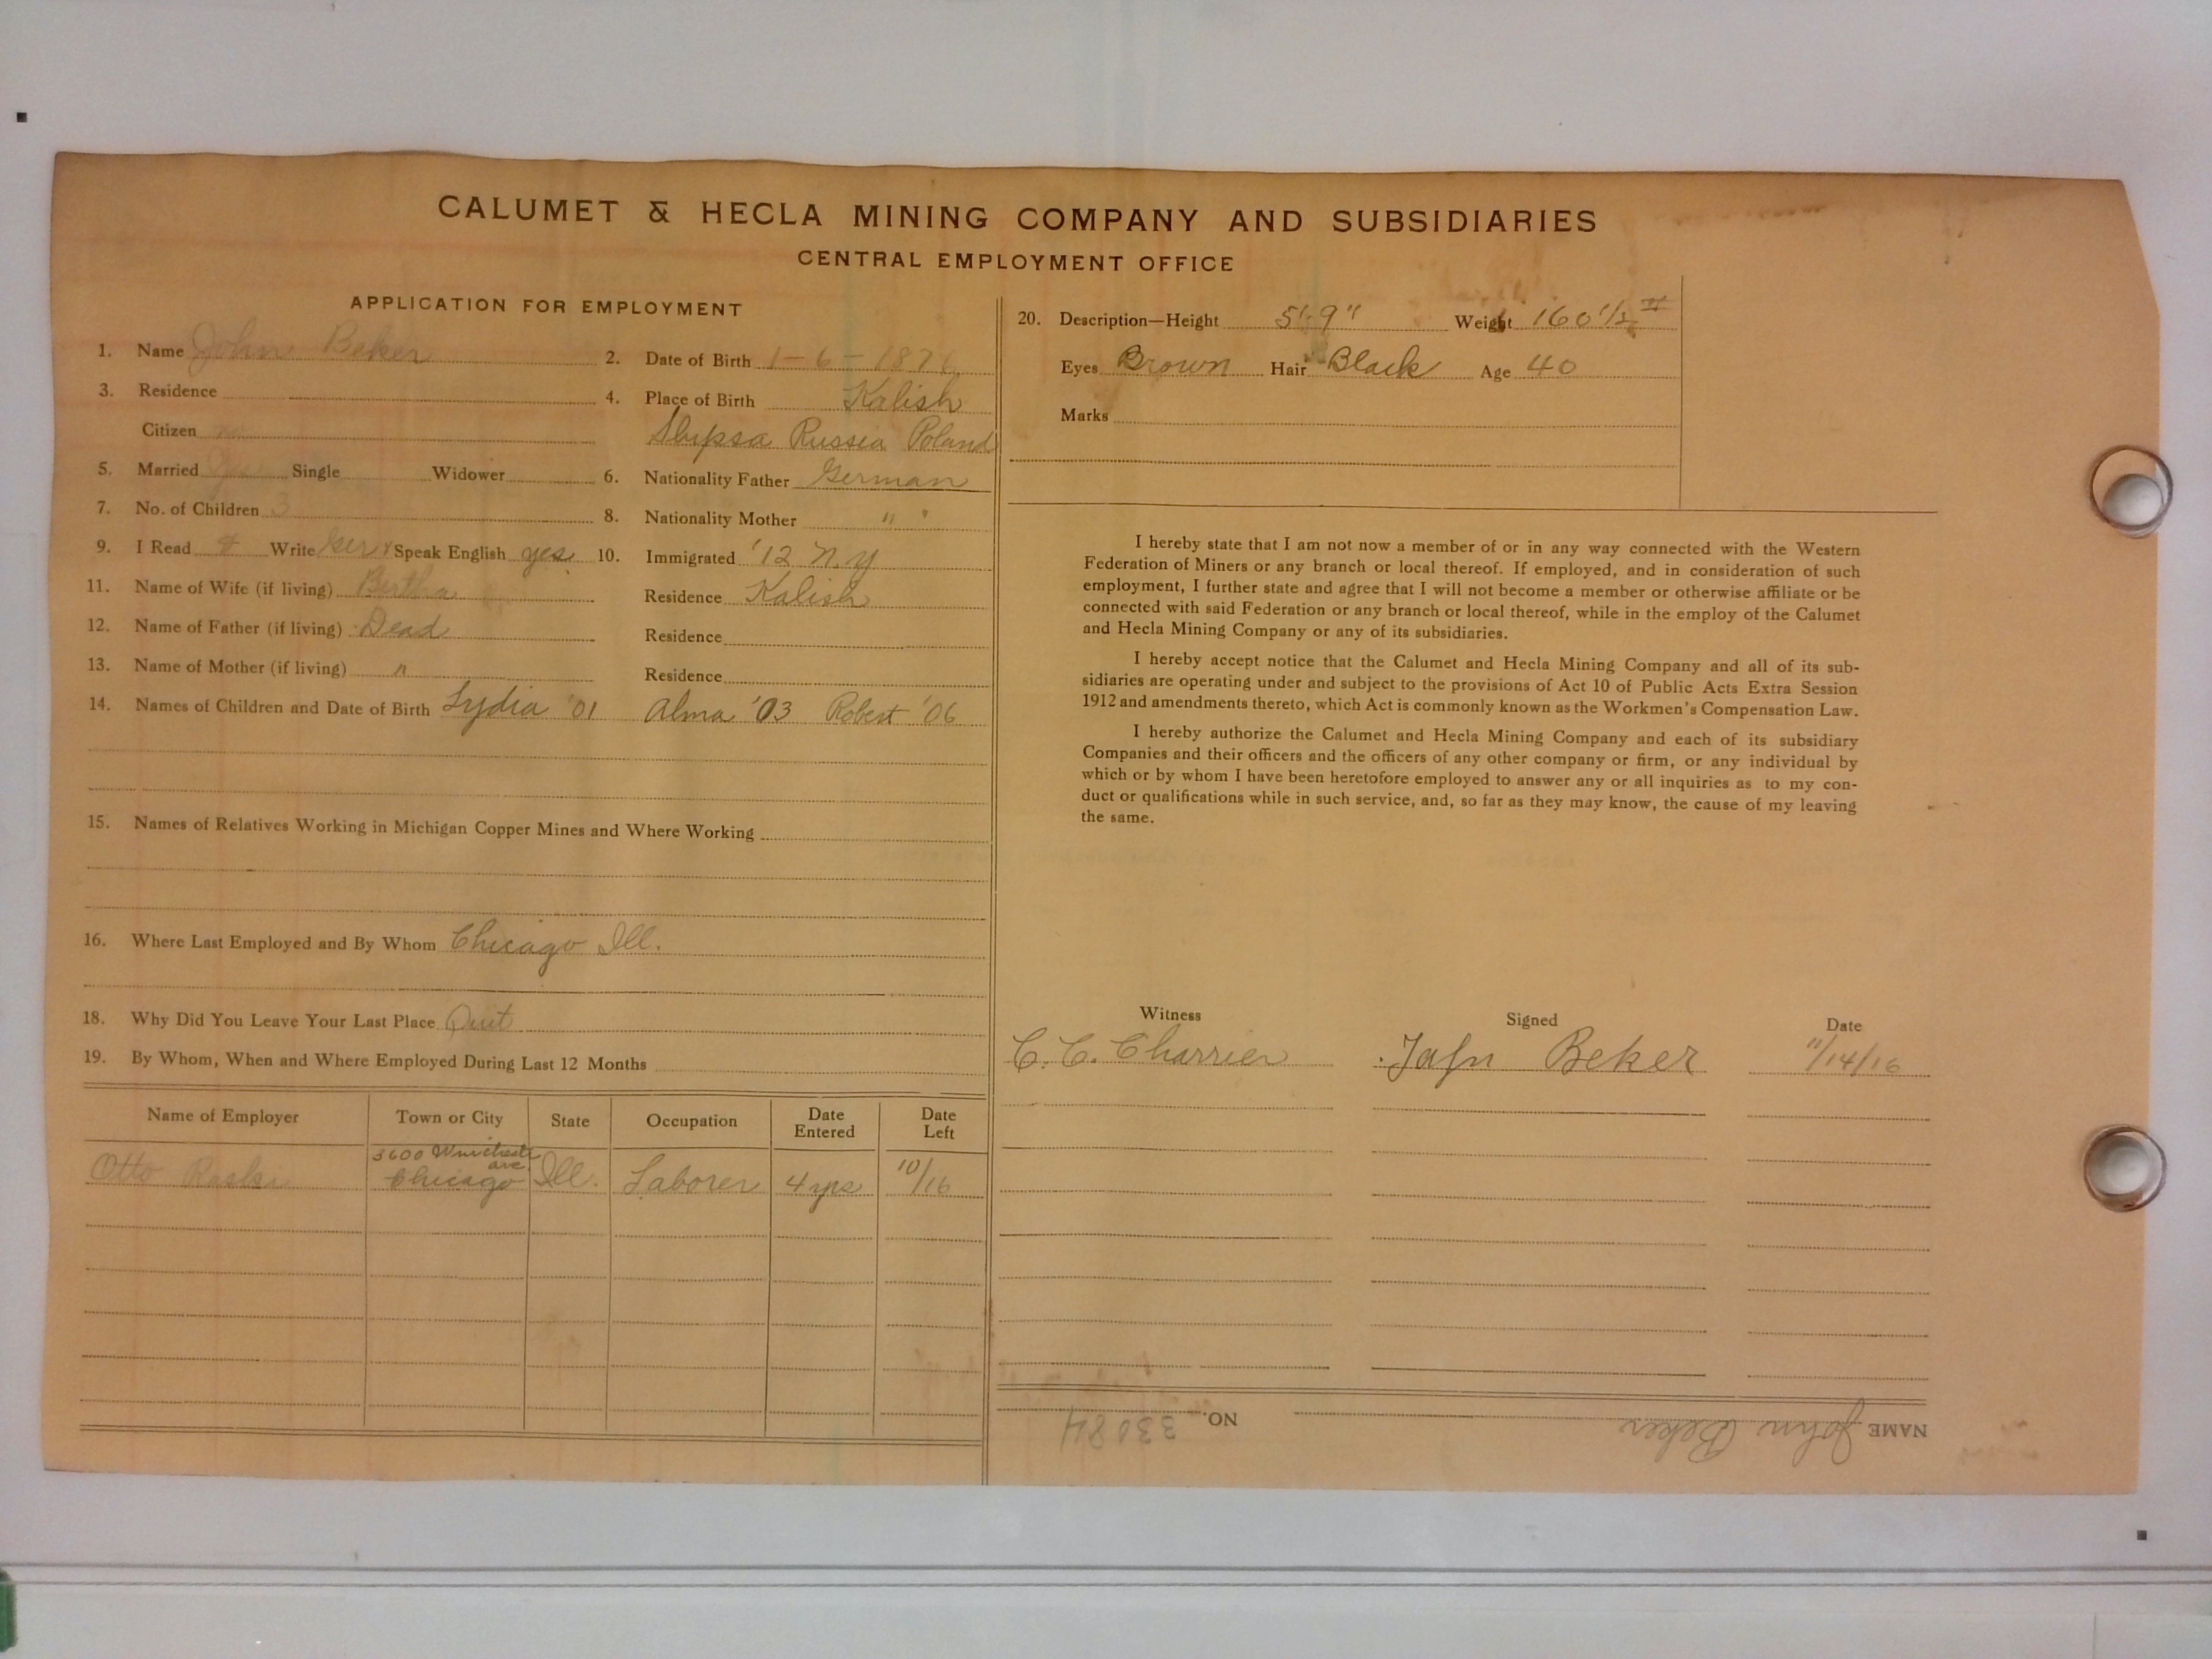 CALUMET & HECLA MINING COMPANY AND SUBSIDIARIES
CENTRAL EMPLOYMENT OFFICE
APPLICATION FOR EMPLOYMENT
1. Name John Beker 2. Date of Birth 1-6-1876
3. Residence 4. Place of Birth Kalish
Citizen no Russia Poland
5. Married yes Single Widower 6. Nationality Father German
7. No. of Children 3 8. Nationality Mother " "
9. I Read & Write Ger & Speak English yes 10. Immigrated '12 N.Y
11. Name of Wife (if living) Bertha Residence Kalish
12. Name of Father (if living) Dead Residence
13. Name of Mother (if living) " Residence
14. Names of Children and Date of Birth Lydia '01 Alma '03 Robert '06
15. Names of Relatives Working in Michigan Copper Mines and Where Working
16. Where Last Employed and By Whom Chicago Ill.
18. Why Did You Leave Your Last Place Quit
19. By Whom, When and Where Employed During Last 12 Months
Name of Employer Town or City State Occupation Date Entered Date Left
3600 Winchester ave.
Otto Chicago Ill. Laborer 4 yrs 10/16
20. Description—Height 5'-9" Weight 160 1/2 #
Eyes Brown Hair Black Age 40
Marks
I hereby state that I am not now a member of or in any way connected with the Western
Federation of Miners or any branch or local thereof. If employed, and in consideration of such
employment, I further state and agree that I will not become a member or otherwise affiliate or be
connected with said Federation or any branch or local thereof, while in the employ of the Calumet
and Hecla Mining Company or any of its subsidiaries.
I hereby accept notice that the Calumet and Hecla Mining Company and all of its sub-
sidiaries are operating under and subject to the provisions of Act 10 of Public Acts Extra Session
1912 and amendments thereto, which Act is commonly known as the Workmen's Compensation Law.
I hereby authorize the Calumet and Hecla Mining Company and each of its subsidiary
Companies and their officers and the officers of any other company or firm, or any individual by
which or by whom I have been heretofore employed to answer any or all inquiries as to my con-
duct or qualifications while in such service, and, so far as they may know, the cause of my leaving
the same.
Witness Signed Date
C. C. Charrier John Beker 11/14/16
NAME John Beker NO. 33084